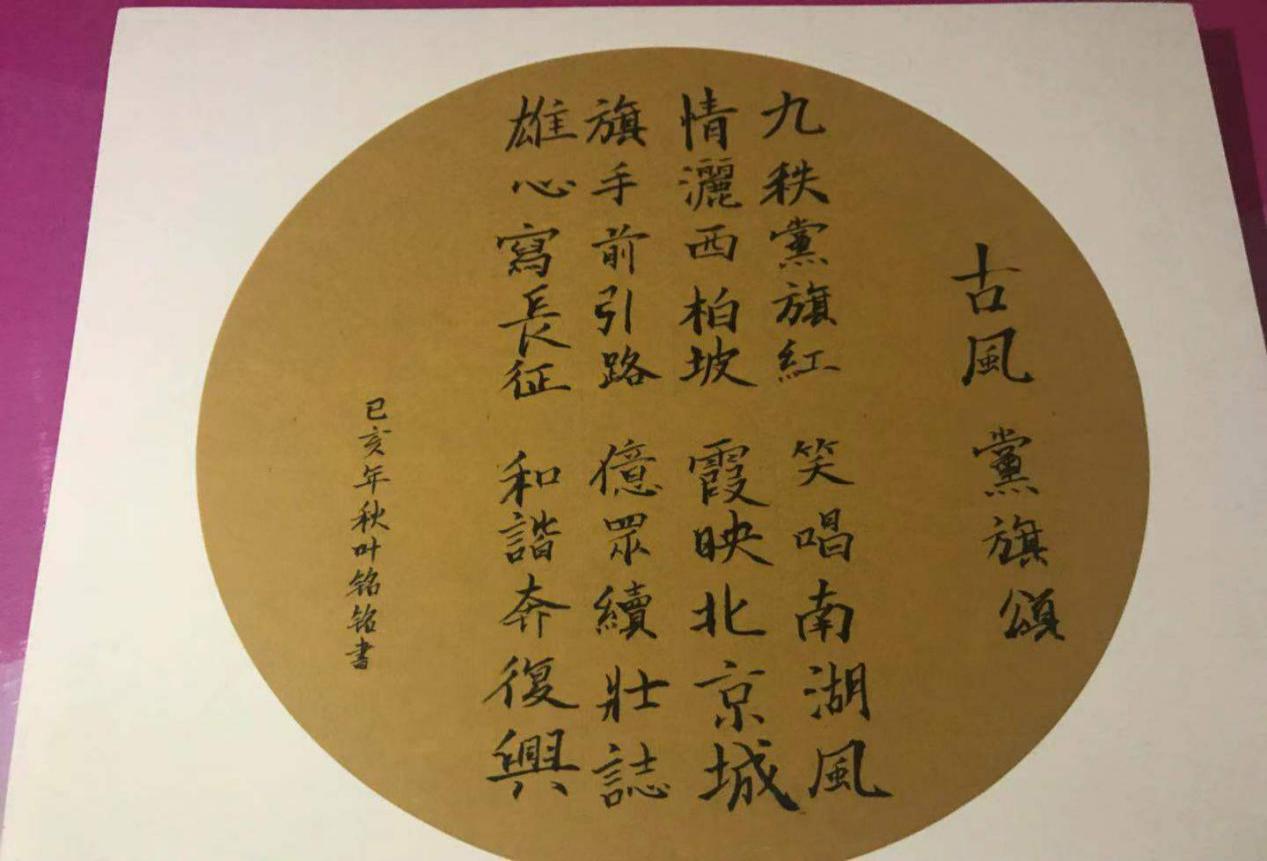 古風 黨旗頌
九秩黨旗紅 笑唱南湖風
情灑西柏坡 霞映北京城
旗手前引路 億眾續壯誌
雄心寫長征 和諧奔復興
已亥年秋叶铭铭書